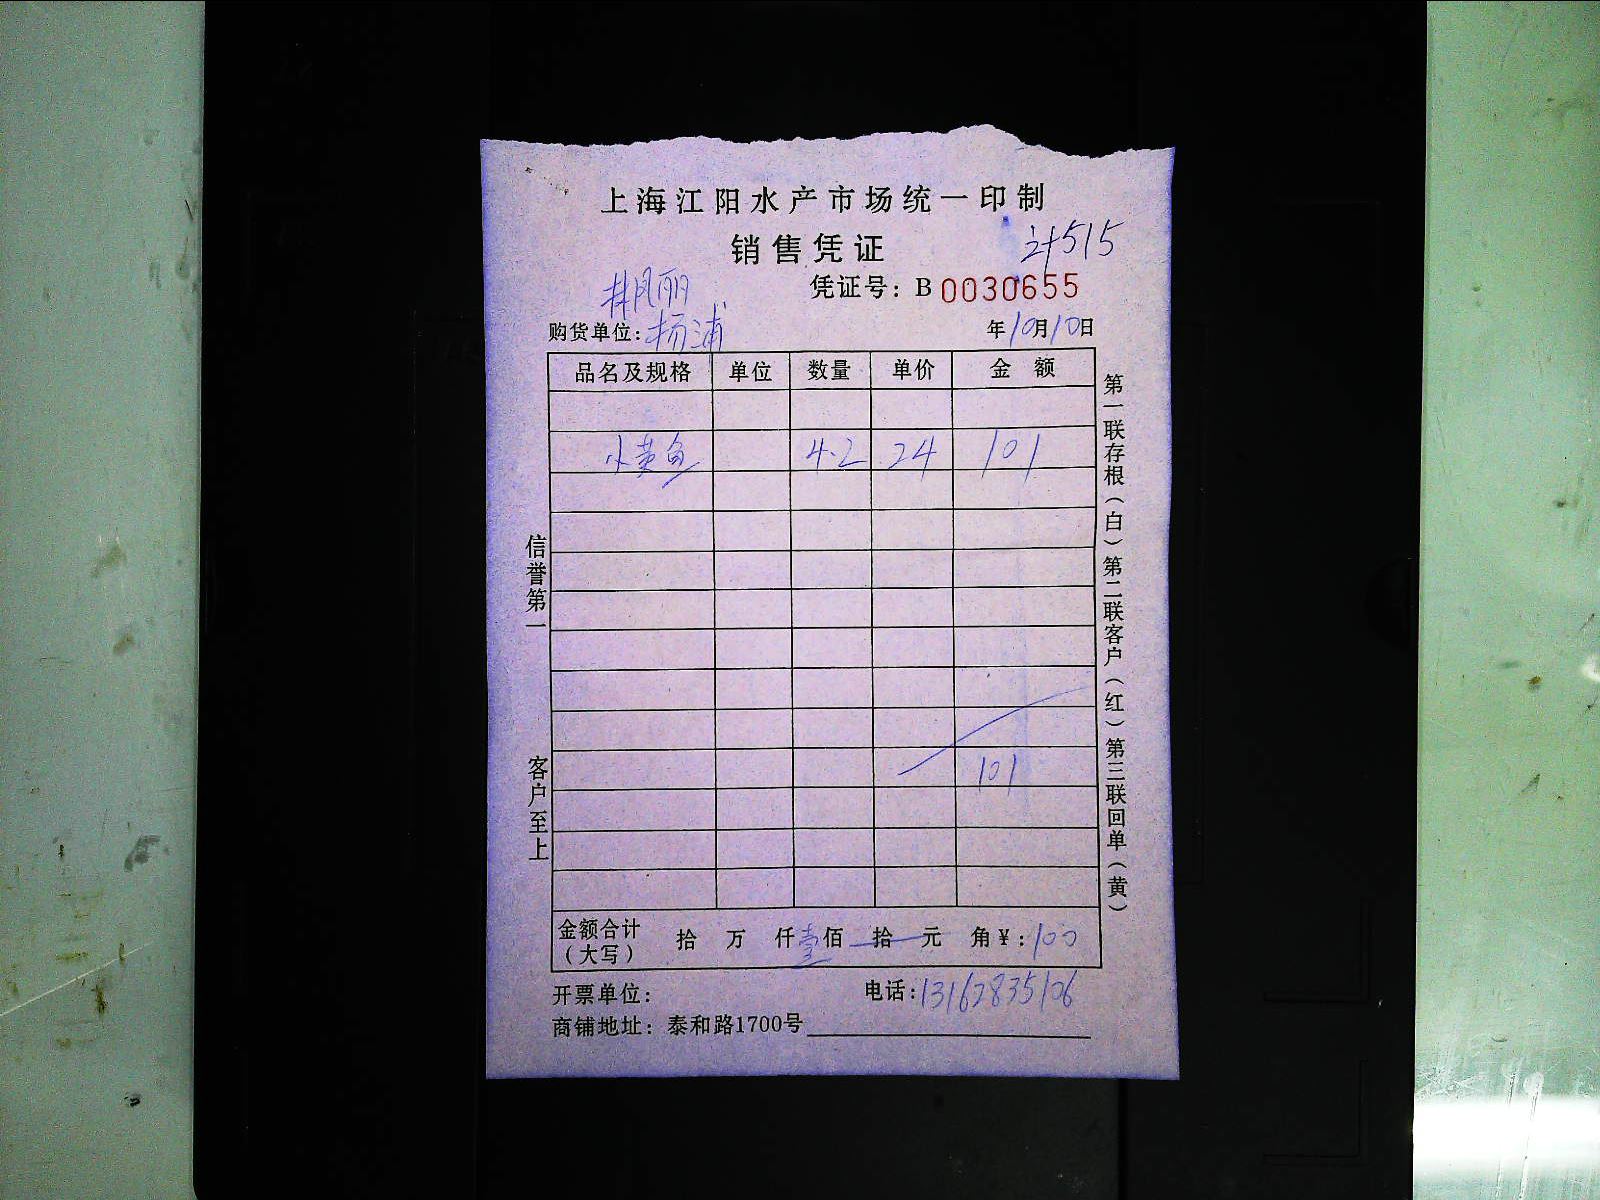 上海江阳水产市场统一印制
销售凭证
计515
凭证号：B 0030655
林凤丽
购货单位：杨浦
年10月10日
品名及规格 单位 数量 单价 金额
小黄鱼 4.2 24 101
101
金额合计（大写） 拾 万 仟壹佰 拾 元 角 ¥：100
开票单位：
电话：13162835106
商铺地址：泰和路1700号
信誉第一 客户至上
第一联存根（白）第二联客户（红）第三联回单（黄）